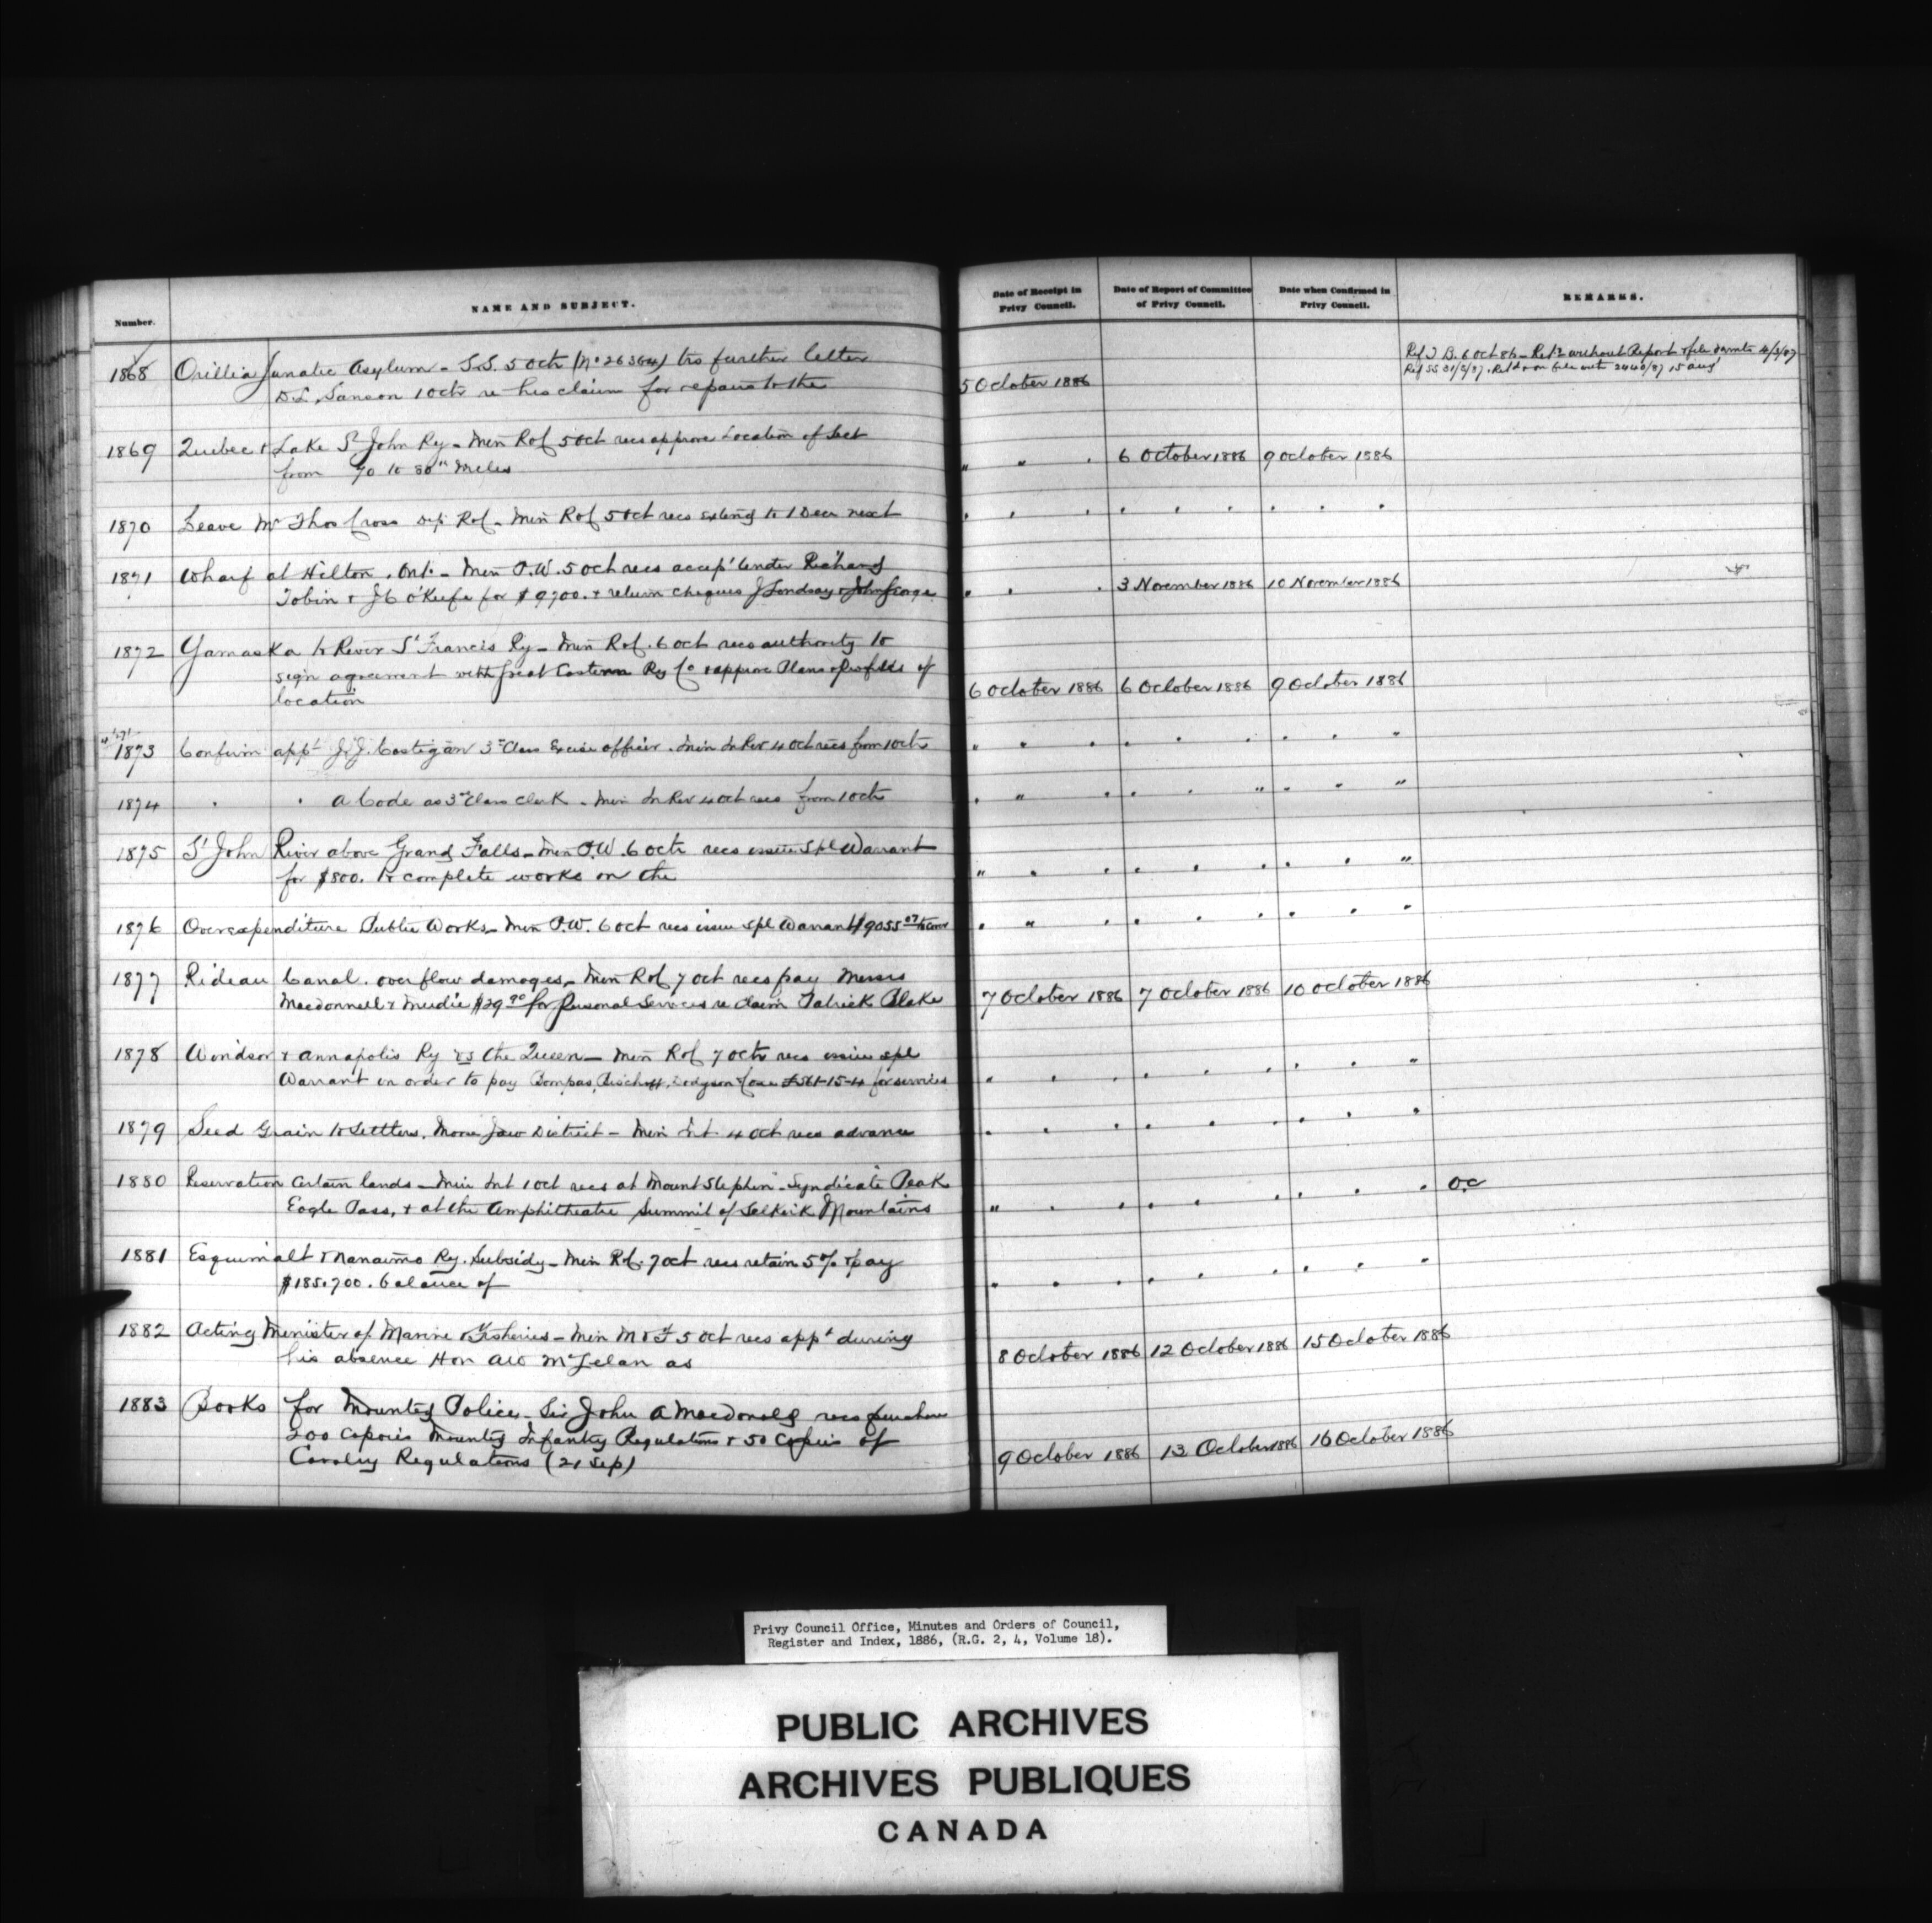 Number.
NAME AND SUBJECT.
Date of Receipt in Privy Council.
Date of Report of Committee of Privy Council.
Date when Confirmed in Privy Council.
REMARKS.
1868 Orillia Lunatic Asylum - S.S. 5 Octr (No 26364) trs further letter
D.L. Sanson 1 Octr re his claim for repairs to the
5 October 1886
Ref T B. 6 Oct 86 - Ret'd without Report & file 4/3/87
Ref SS 31/3/87. Ret'd & on file with 2440/87 15 Aug
1869 Quebec & Lake St John Ry - Min R&C 5 Oct recs approve Location of Sect
from 70 to 80th Miles
" " . 6 October 1886 9 October 1886
1870 Leave Mr Thos Cross Dep. R&C - Min R&C 5 Oct recs extend to 1 Decr next
1871 Wharf at Hilton, Ont. - Min P.W. 5 Oct recs accep' tender Richard
Tobin & J C O'Keefe for $9700. & return cheques J Lindsay & John George
3 November 1886 10 November 1886
1872 Yamaska to River St Francis Ry - Min R&C. 6 Oct recs authority to
sign agreement with Great Eastern Ry Co & approve Plans & Profiles of
location
6 October 1886 6 October 1886 9 October 1886
1873 Confirm appt J.J. Costigan 3rd Class Excise officer. Min In Rev 4 Oct recs from 1 Octr
1874 . . A Code as 3rd Class Clerk - Min In Rev 4 Oct recs from 1 Octr
1875 St John River above Grand Falls - Min P.W. 6 Octr recs issue Spl Warrant
for $800. to complete works on the
1876 Overexpenditure Public Works - Min P.W. 6 Oct recs issue Spl Warrant $9055 07 to cover
1877 Rideau Canal. overflow damages - Min R&C 7 Oct recs pay Messrs
Macdonnell & Mudie $29 90 for personal Services re Claim Patrick Blake
7 October 1886 7 October 1886 10 October 1886
1878 Windsor & Annapolis Ry vs the Queen - Min R&C 7 Octr recs issue spl
Warrant in order to pay Bompas, Bischoff, Dodgson Coxe 15-4 for services
1879 Seed Grain to Settlers. Moose Jaw District - Min Int 4 Oct recs advance
1880 Reservation Certain lands - Min Int 1 Oct recs at Mount Stephen - Syndicate Peak
Eagle Pass, & at the Amphitheatre Summit of Selkirk Mountains
O.C
1881 Esquimalt & Nanaimo Ry. Subsidy - Min R&C. 7 Oct recs retain 5% & pay
$185.700. balance of
1882 Acting Minister of Marine & Fisheries - Min M & F 5 Oct recs appt during
his absence Hon A W McLelan as
8 October 1886 12 October 1886 15 October 1886
1883 Books for Mounted Police - Sir John A Macdonald recs purchase
200 Copies Mounted Infantry Regulations & 50 Copies of
Cavalry Regulations (21 Sep)
9 October 1886 13 October 1886 16 October 1886
Privy Council Office, Minutes and Orders of Council,
Register and Index, 1886, (R.G. 2, 4, Volume 18).
PUBLIC ARCHIVES
ARCHIVES PUBLIQUES
CANADA